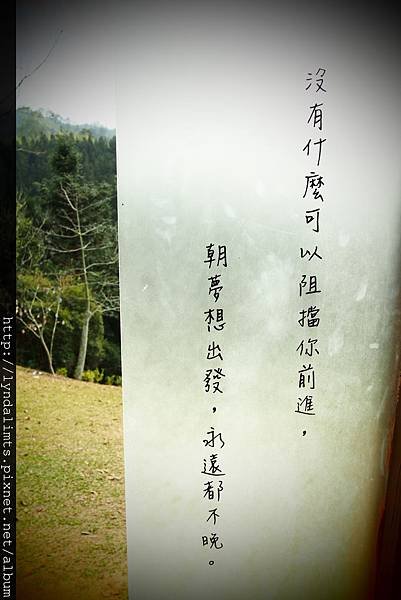 沒有什麼可以阻擋你前進，
朝夢想出發，永遠都不晚。
http://lyndalimts.pixnet.net/album